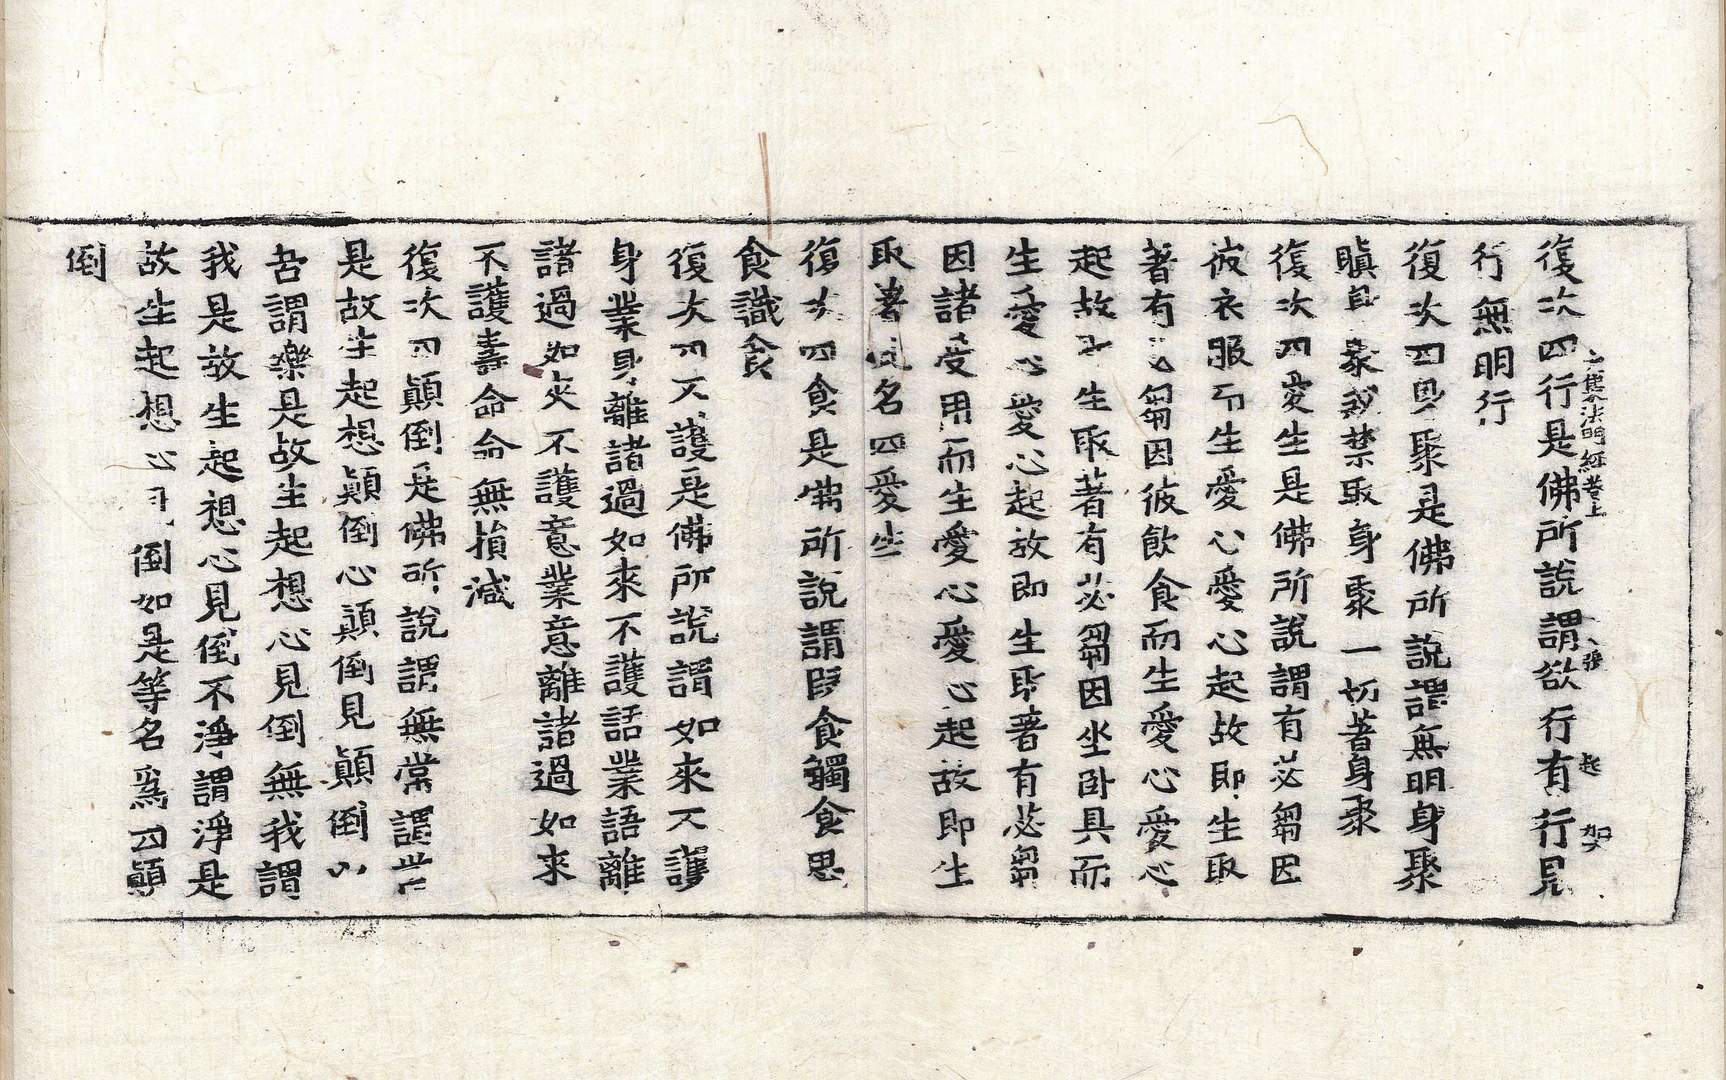 復次四行是佛所說謂欲行有行見
大集法門經卷上 八張 起 加
行無明行
復次四身聚是佛所說謂無明身聚
瞋身聚戒禁取身聚一切著身聚
復次四愛生是佛所說謂有苾芻因
彼衣服而生愛心愛心起故即生取
著有苾芻因彼飲食而生愛心愛心
起故即生取著有苾芻因坐卧具而
生愛心愛心起故即生取著有苾芻
因諸受用而生愛心愛心起故即生
取著此名四愛生
復次四食是佛所說謂段食觸食思
食識食
復次四不護是佛所說謂如來不護
身業身離諸過如來不護語業語離
諸過如來不護意業意離諸過如來
不護壽命命無損減
復次四顛倒是佛所說謂無常謂常
是故生起想顛倒心顛倒見顛倒以
苦謂樂是故生起想心見倒無我謂
我是故生起想心見倒不淨謂淨是
故生起想心見倒如是等名爲四顛
倒